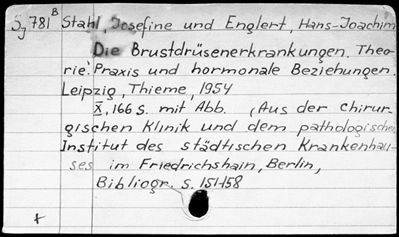 Jg 781 B Stahl, Josefine und Englert, Hans-Joachim
Die Brustdrüsenerkrankungen. Theo-
rie. Praxis und hormonale Beziehungen.
Leipzig, Thieme, 1954
X, 166 S. mit Abb. (Aus der chirur-
gischen Klinik und dem pathologischen
Institut des städtischen Krankenhau-
ses im Friedrichshain, Berlin,
Bibliogr. S. 151-158